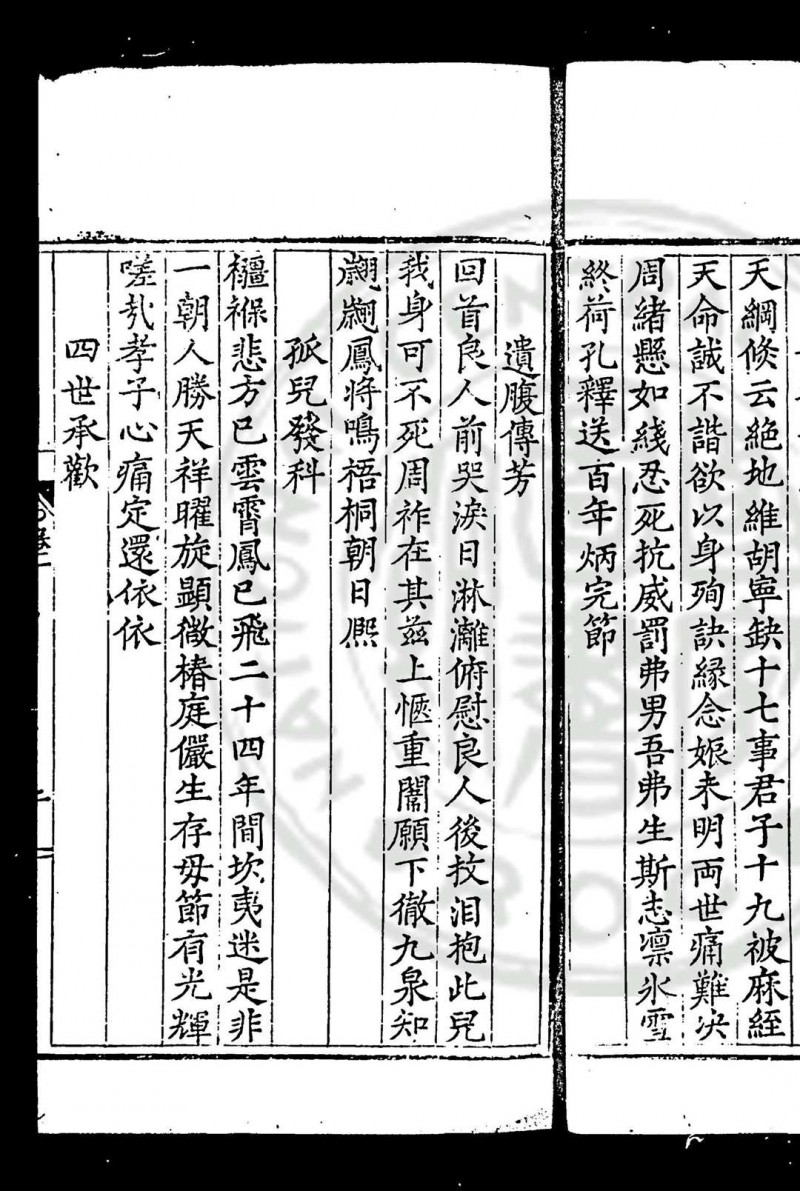 天綱倐云絶地維胡寧缺十七事君子十九被麻絰
天命誠不諧欲以身殉訣縁念娠未明兩世痛難决
周緒懸如綫忍死抗威罰弗男吾弗生斯志凛氷雪
終荷孔釋送百年炳完節
遺腹傳芳
回首良人前哭淚日淋灕俯慰良人後抆泪抱此兒
我身可不死周祚在其兹上愜重闈願下徹九泉知
翽翽鳳将鳴梧桐朝日熈
孤兒發科
襁褓悲方已雲霄鳳已飛二十四年間坎夷迷是非
一朝人勝天祥曜旋顯微椿庭儼生存毋節有光輝
嗟㢤孝子心痛定還依依
四世承歡